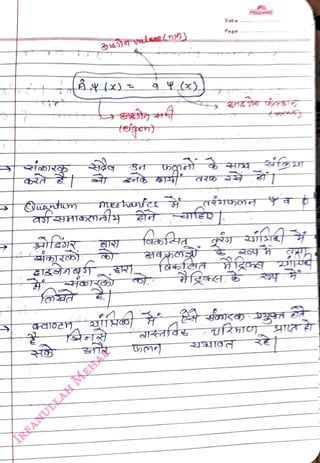 Date
Page
आइगेन value (मान)
Â ψ (x) = a ψ (x)
आइगेन फलन
(eigen)
→ संकारक सदैव उन फलनों के साथ संक्रिया
करते है। जो इनके दायीं तरफ रखे हों।
→ Quantum mechanics में तरंगफलन ψ व ϕ
वर्ग समाकलनीय होने चाहिए।
→ श्रोडिंगर द्वारा विकसित तरंग यांत्रिकी में
संकारकों को अवकलजों के रूप में तथा
हाइजेनबर्ग द्वारा विकसित मैट्रिक्स यांत्रिकी
में संकारकों को मैट्रिक्स के रूप में
लिखते है।
→ क्वाण्टम यांत्रिकी में ऐसे संकारक प्रयुक्त होते
है जिनसे वास्तविक परिमाण प्राप्त हो
सके और फलन यथावत रहे।
IRFANULLAH MEHAR